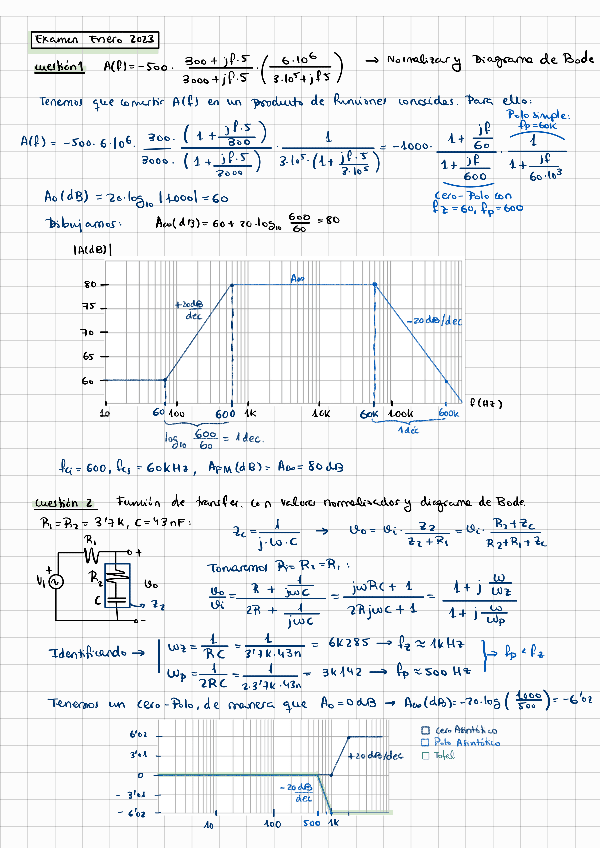 Examen Enero 2023
Cuestión 1 A(f) = -500 · (300 + jf·5)/(3000 + jf·5) · (6·10⁶/(3·10⁵ + jf5)) → Normalizar y Diagrama de Bode
Tenemos que convertir A(f) en un producto de funciones conocidas. Para ello:
Polo simple:
fp = 60K
A(f) = -500 · 6·10⁶ · (300 · (1 + jf·5/300))/(3000 · (1 + jf·5/3000)) · 1/(3·10⁵ · (1 + jf·5/3·10⁵)) = -1000 · (1 + jf/60)/(1 + jf/600) · 1/(1 + jf/60·10³)
Cero-Polo con
fz = 60, fp = 600
A₀(dB) = 20·log₁₀ |1000| = 60
Dibujamos: A∞(dB) = 60 + 20·log₁₀ 600/60 = 80
|A(dB)|
80
75
70
65
60
+20dB/dec
A∞
-20dB/dec
10 60 100 600 1K 10K 60K 100K 600K f(Hz)
log₁₀ 600/60 = 1 dec.
1 dec
fci = 600, fcs = 60KHz, AFM(dB) = A∞ = 80dB
Cuestión 2 Función de transfer. con valores normalizados y diagrama de Bode.
R₁ = R₂ = 3'7K, C = 43nF:
Zc = 1/(j·ω·C) → vo = vi · Z₂/(Z₂ + R₁) = vi · (R₂ + Zc)/(R₂ + R₁ + Zc)
R₁
+
+
V₁
R₂
vo
C
Z₂
-
Tomamos R₁ = R₂ = R:
vo/vi = (R + 1/jωC)/(2R + 1/jωC) = (jωRC + 1)/(2RjωC + 1) = (1 + j ω/ωz)/(1 + j ω/ωp)
Identificando → ωz = 1/RC = 1/(3'7K·43n) = 6K285 → fz ≈ 1KHz
ωp = 1/2RC = 1/(2·3'7K·43n) = 3K142 → fp ≈ 500 Hz
fp < fz
Tenemos un cero-Polo, de manera que A₀ = 0dB → A∞(dB) = -20·log(1000/500) = -6'02
6'02
3'01
0
-3'01
-6'02
+20dB/dec
-20dB/dec
10 100 500 1K
Cero Asintótico
Polo Asintótico
Total